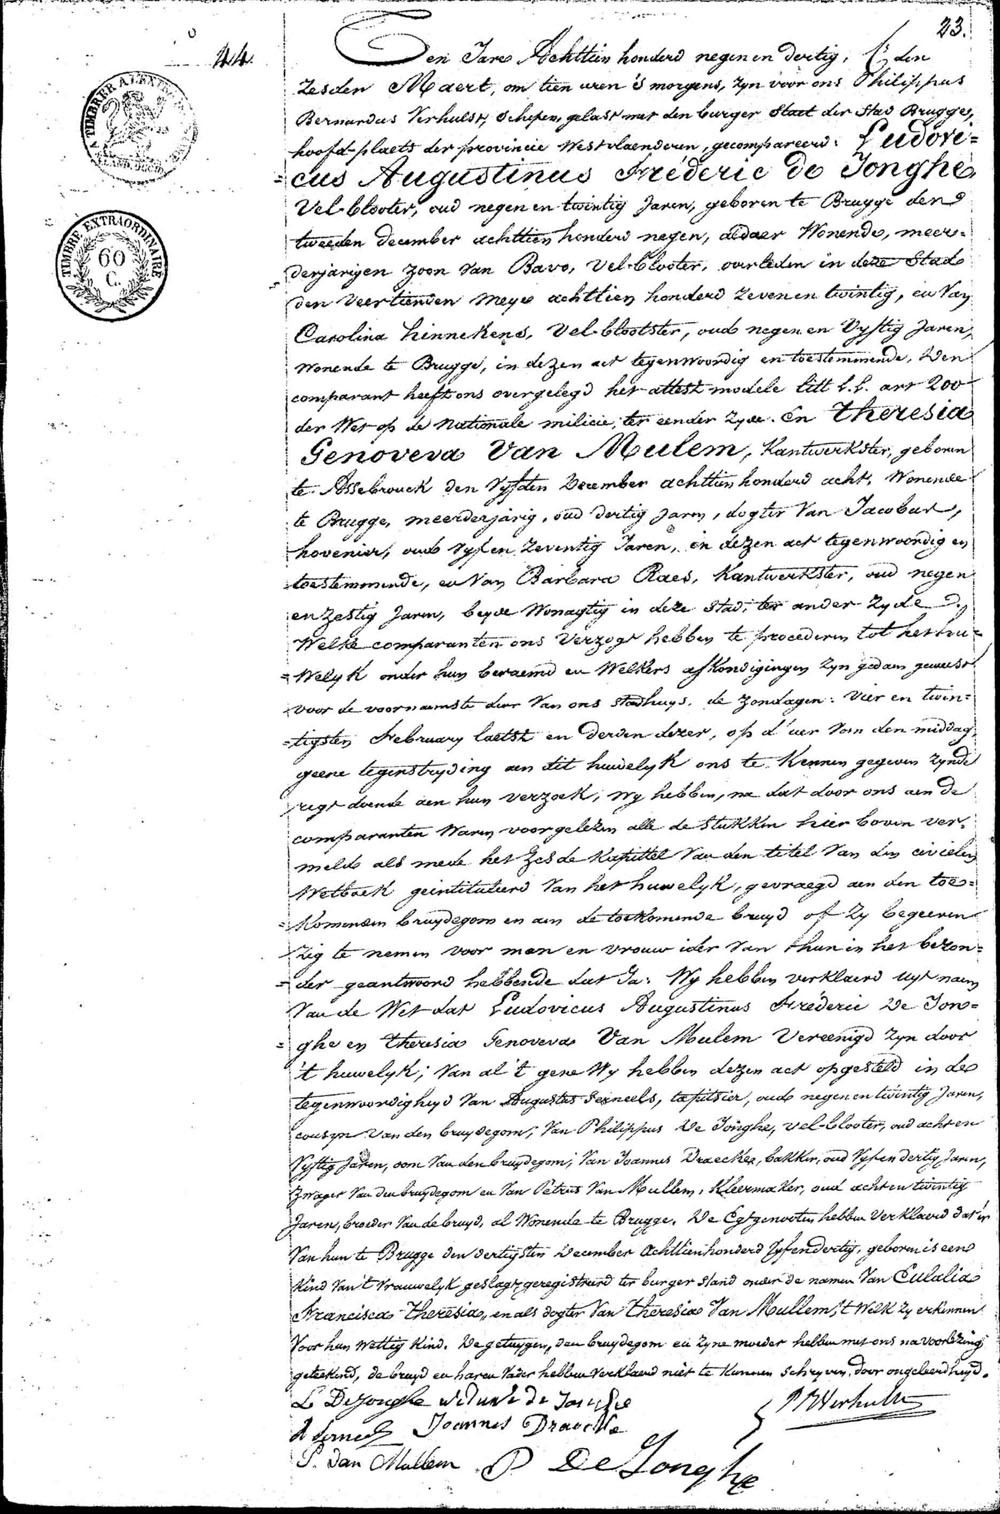 23.
44.
A TIMBRER A L'EXTR
TIMBRE EXTRAORDINAIRE
60
C.
Den Jare Achttien honderd negen en dertig, den
zesden Maert, om tien uren 's morgens, zyn voor ons Philippus
Bernardus Verhulst, Schepen, gelast met den burger Staet der Stad Brugge,
hoofd-plaets der provincie Westvlaenderen, gecompareerd: Ludovi=
=cus Augustinus Fréderic de Jonghe,
Vel-blooter, oud negen en twintig Jaren, geboren te Brugge den
tweeden december achttien honderd negen, aldaer Wonende, meer=
=derjarigen zoon Van Bavo, Vel-blooter, overleden in deze Stad
den Veertienden Meye achttien honderd zeven en twintig, en Van
Carolina hinnekens, Vel-blootster, oud negen en Vyftig Jaren,
Wonende te Brugge, in dezen act tegenwoordig en toestemmende. Den
comparant heeft ons overgelegd het attest modele litt L.L. art 200
der Wet op de Nationale milicie, ter eender Zyde. En Theresia
Genoveva Van Mulem, Kantwerkster, geboren
te Assebrouck den Vyfden December achttien honderd acht, Wonende
te Brugge, meerderjarig, oud dertig Jaren, dogter Van Jacobus,
hovenier, oud Vyf en Zeventig Jaren, in dezen act tegenwoordig en
toestemmende, en Van Barbara Raes, Kantwerkster, oud negen
en Zestig Jaren, beyde Wonagtig in deze Stad, ter ander Zyde
Welke comparanten ons Verzogt hebben te procederen tot het hu=
=Welyk onder hun beraemd en Welkers afkondigingen Zyn gedaen geweest
voor de voornaemste deur Van ons Stadhuys, de Zondagen: Vier en twin=
=tigsten February laetst en derden dezer, op d'uer Van den middag,
geene tegenstryding aen dit huwelyk ons te Kennen gegeven Zynde
regt doende aen hun verzoek, Wy hebben, na dat door ons aen de
comparanten Waren voorgelezen alle de Stukken hier boven ver=
meld als mede het Zesde Kapittel Van den titel Van den civielen
Wetboek geintituleerd Van het huwelyk, gevraegd aen den toe=
=Komenden bruydegom en aen de toekomende bruyd of Zy begeeren
Zig te nemen voor man en vrouw ider Van hun in het bezon=
=der geantwoord hebbende dat Ja: Wy hebben verklaerd uyt naem
Van de Wet dat Ludovicus Augustinus Fréderic De Jon=
=ghe en Theresia Genoveva Van Mulem Vereenigd Zyn door
't huwelyk; Van al 't gene Wy hebben dezen act opgesteld in de
tegenwoordigheyd Van Augustus Serneels, tapitsier, oud negen en twintig Jaren,
cousyn van den bruydegom; Van Philippus De Jonghe, Vel-blooter, oud acht en
Vyftig Jaren, oom Van den bruydegom; Van Joannes Draecke, bakker, oud Vyf en dertig Jaren,
Zwager Van den bruydegom en Van Petrus Van Mullem, Kleermaker, oud acht en twintig
Jaren, broeder Van de bruyd, al Wonende te Brugge. De Egtgenooten hebben Verklaerd dat 'er
Van hun te Brugge den dertigsten December Achttien honderd Vyf en dertig, geboren is een
Kind Van 't Vrouwelyk geslagt, geregistreerd ter burger Stand onder de namen Van Eulalia
Francisca-Theresia, en als dogter Van Theresia Van Mullem, 't Welk Zy erkennen
Voor hun Wettig Kind. De getuygen, den bruydegom en Zyne moeder hebben met ons na voorlezing
geteekend, de bruyd en haren Vader hebben verklaerd niet te Kunnen Schryven, door ongeleerdheyd.
L DeJonghe Weduwe de Jonghe PBVerhulst
A Serneels Joannes Draecke
P. Van Mullem P De Jonghe